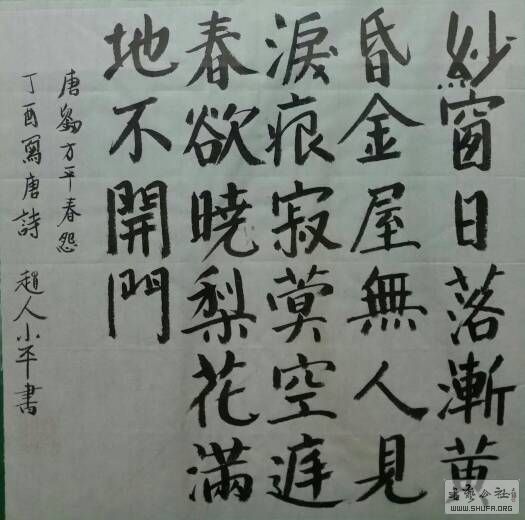 紗窗日落漸黄
昏金屋無人見
淚痕寂寞空庭
春欲曉梨花滿
地不開門
唐劉方平春怨
丁酉寫唐詩 趙人小平書
书艺公社
WWW.SHUFA.ORG